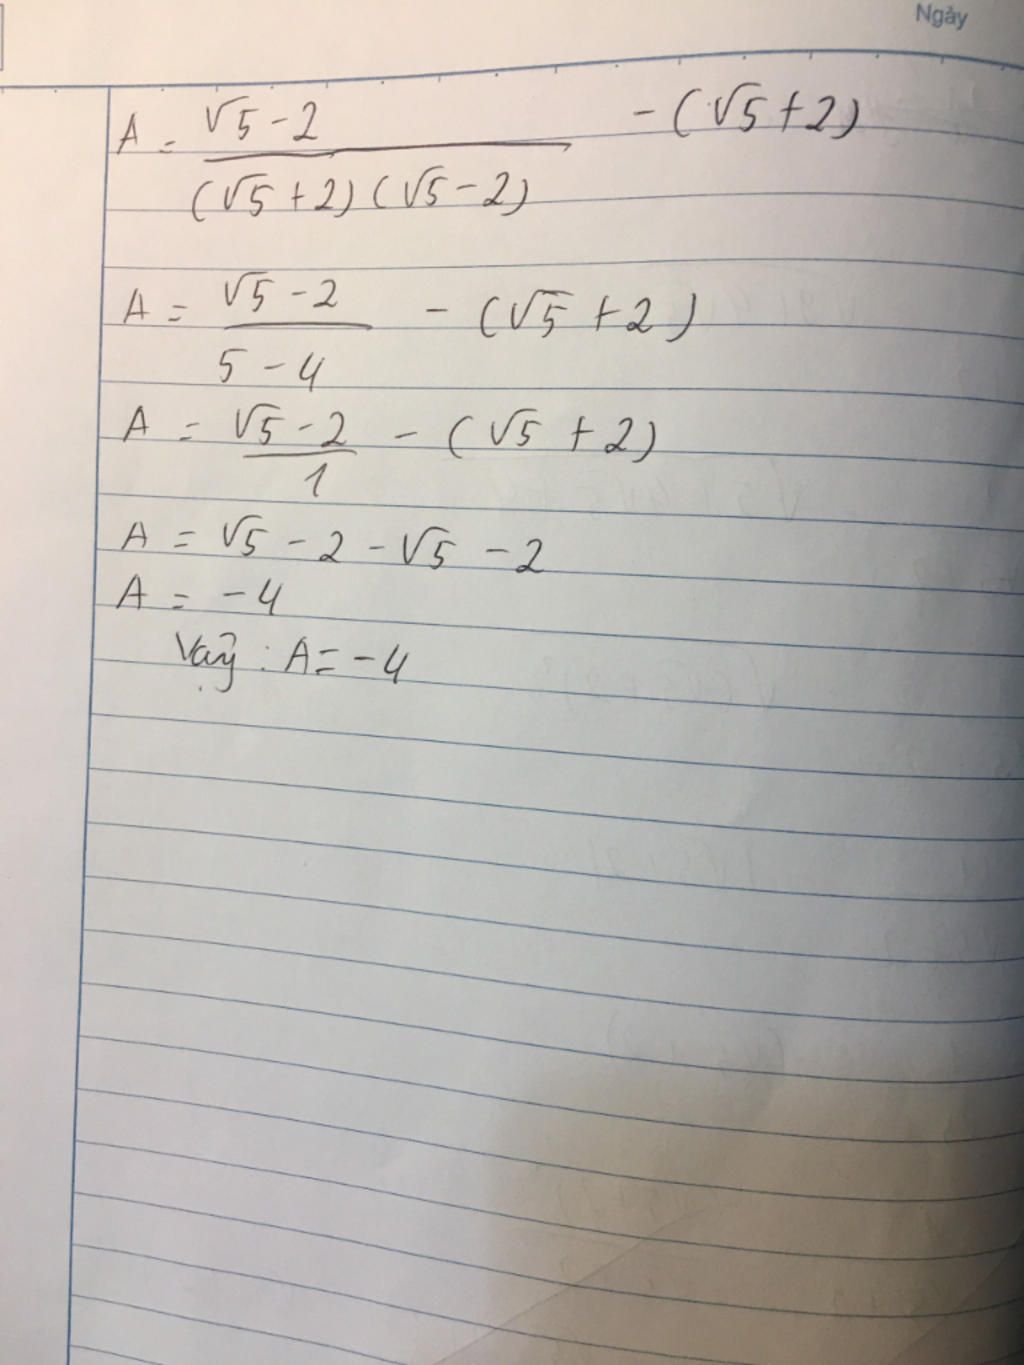 Ngày
A = √5 - 2 / (√5 + 2)(√5 - 2) - (√5 + 2)
A = √5 - 2 / 5 - 4 - (√5 + 2)
A = √5 - 2 / 1 - (√5 + 2)
A = √5 - 2 - √5 - 2
A = -4
Vậy : A = -4